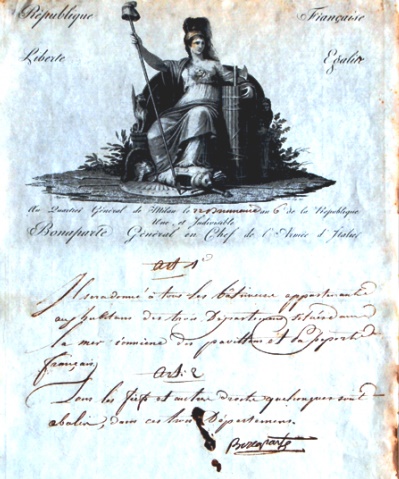 République Française
Liberté Egalité
Au Quartier Général de Milan le 22 Brumaire an 6e de la République
Une et Indivisible
Bonaparte Général en Chef de l'Armée d'Italie
art 1er
Il sera donné à tous les bâtimens appartenant
aux habitans des trois Départemens situés dans
la mer ionienne des pavillons et la
français
art. 2
Tous les fiefs et autres droits quelconques sont
abolis, dans ces trois Départemens.
Bonaparte